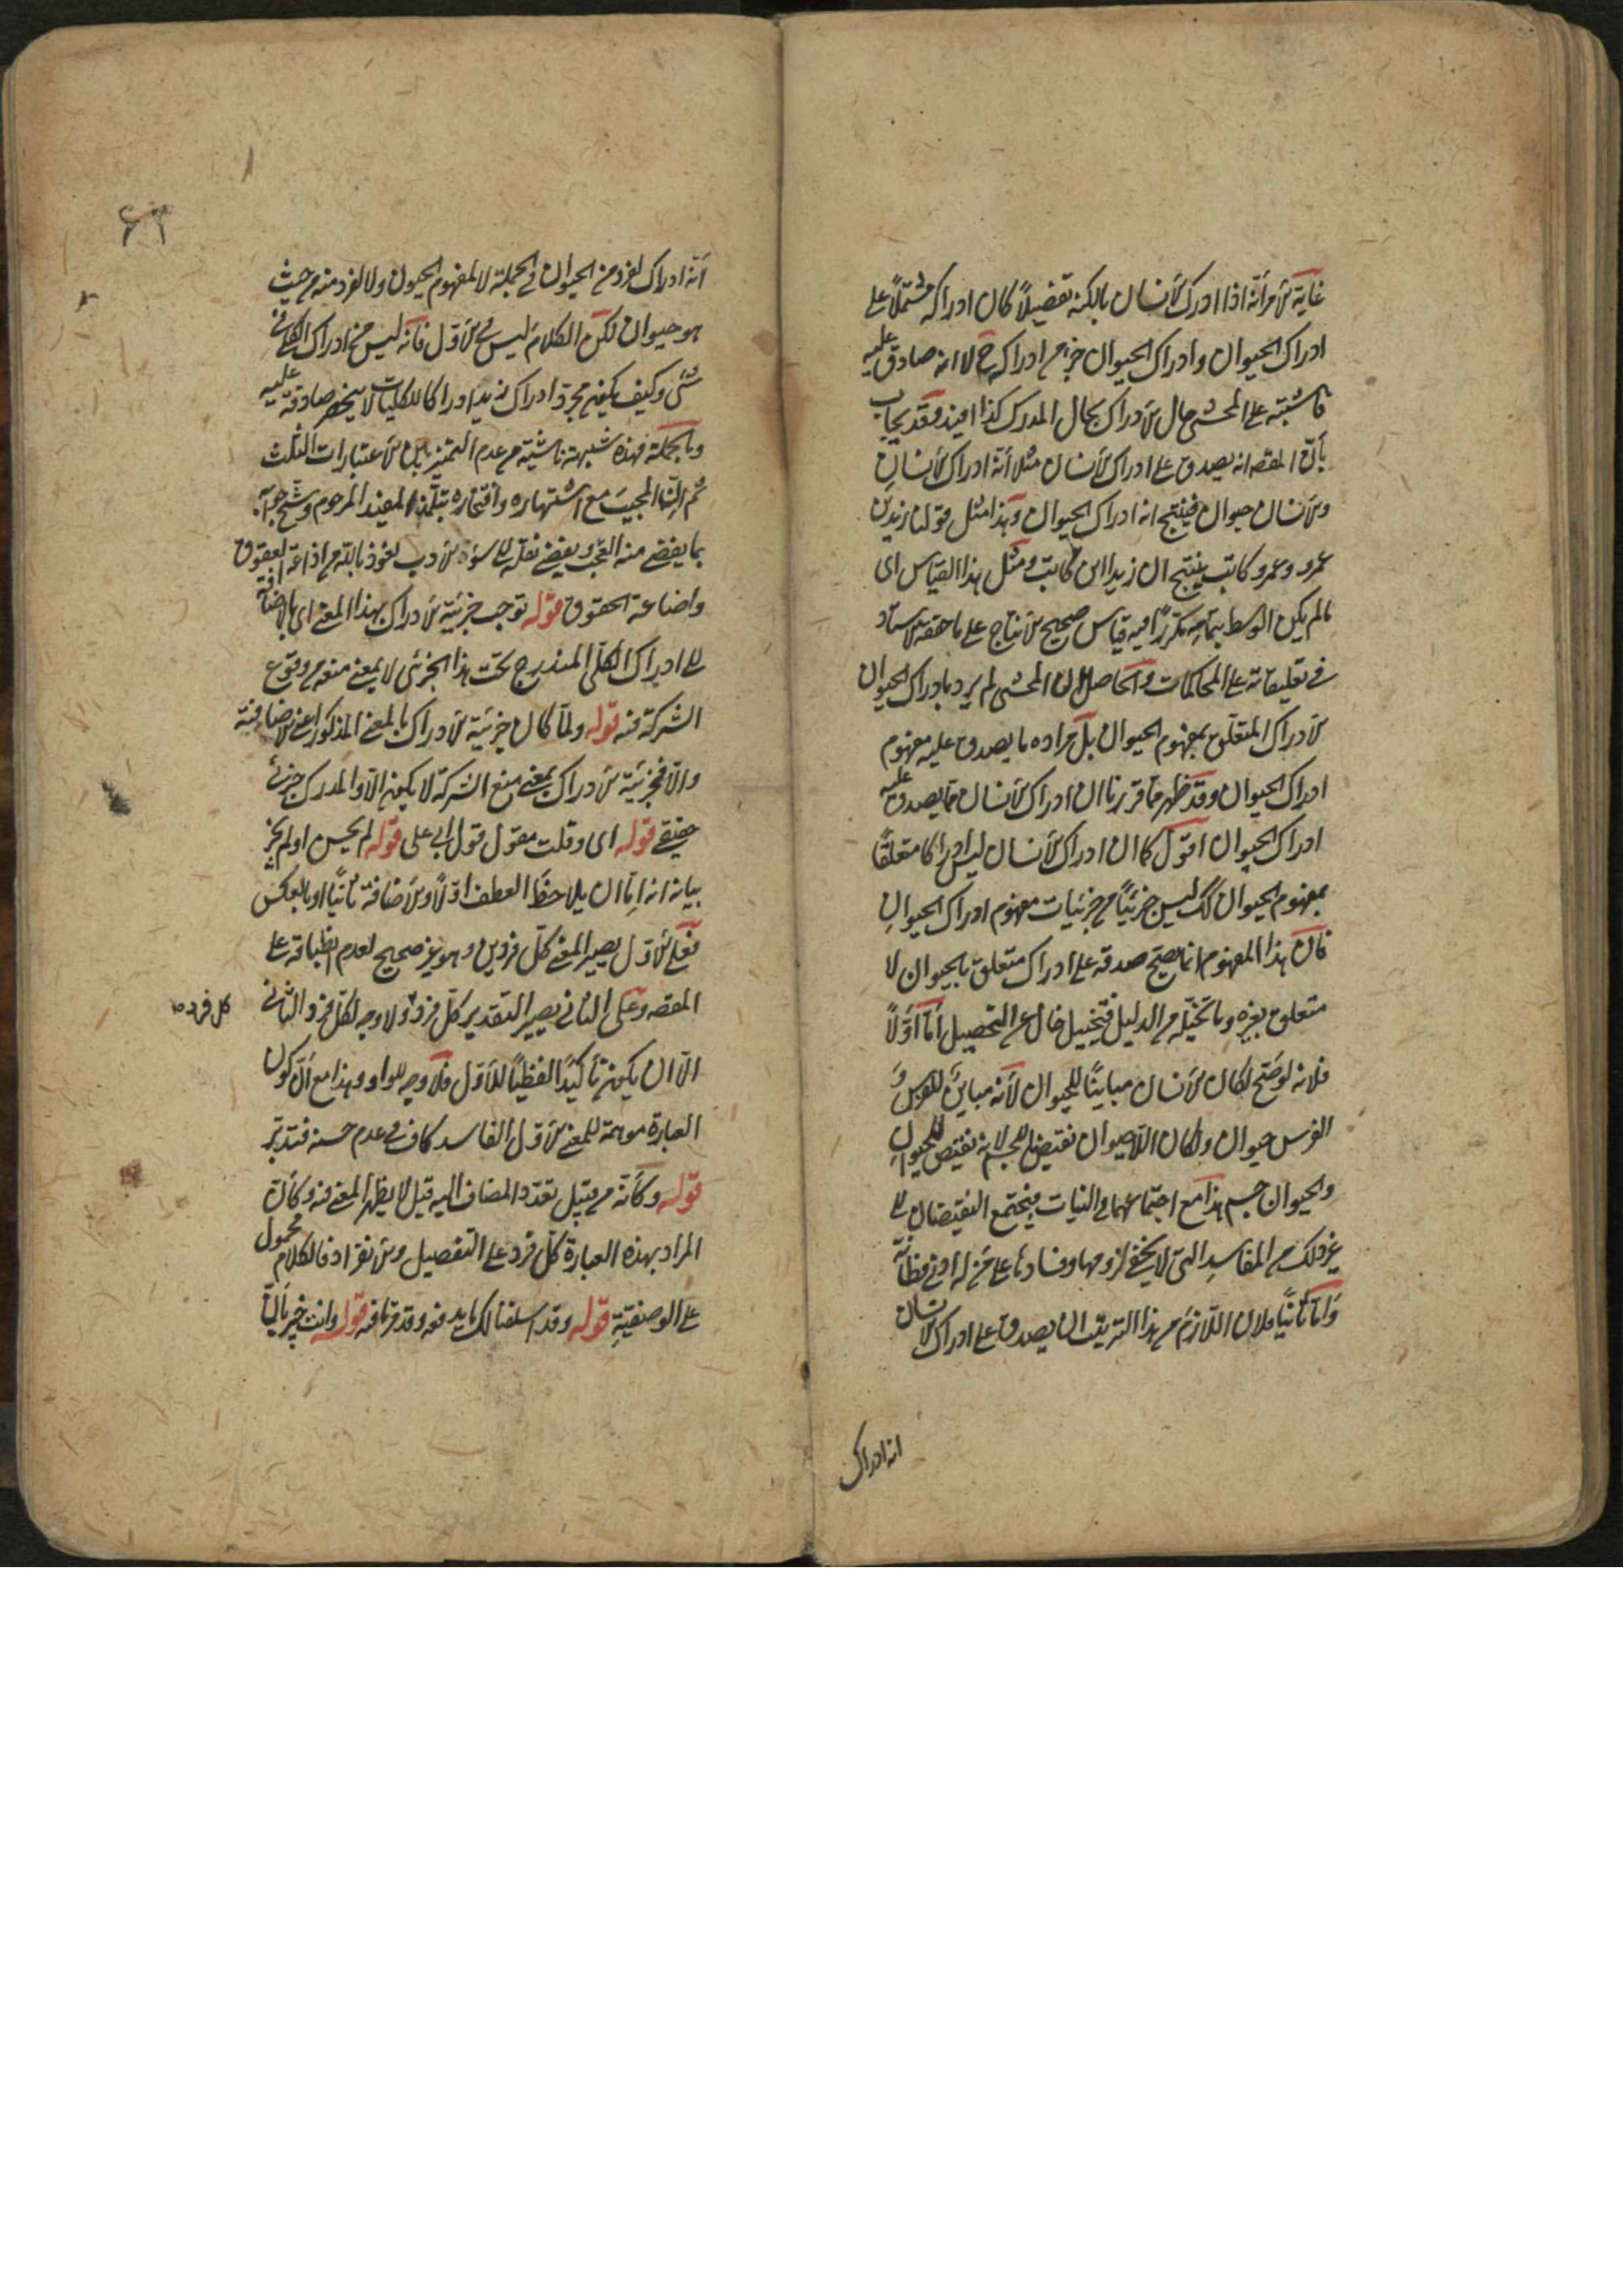 غاية الأمر أنه اذا ادرك الأنسان بالكنه تفصيلاً كان ادراكه مشتملاً على
ادراك الحيوان وادراك الحيوان جزء من ادراكه ح لا انه صادق عليه
فاشتبه على المحشى حال الأدراك بحال المدرك كذا افيد وقد يجاب
بأن المقصـ انه يصدق على ادراك الأنسان مثلا أنه ادراك الأنسان
والأنسان حيوان فينتج انه ادراك الحيوان وهذا مثل قولنا زيد بن
عمرو وعمرو كاتب ينتج ان زيدا ابن كاتب ومثل هذا القياس اى
ما لم يكن الوسط بتمامه مكررًا فيه قياس صحيح الأنتاج على ما حققه الاستاد
فى تعليقاته على المحاكمات والحاصل ان المحشى لم يرد بادراك الحيوان
الأدراك المتعلق بمفهوم الحيوان بل مراده ما يصدق عليه مفهوم
ادراك الحيوان وقد ظهر مما قررنا ان ادراك الأنسان مما يصدق عليه
ادراك الحيوان اقول كما ان ادراك الأنسان ليس ادراكا متعلقًا
بمفهوم الحيوان كك ليس جزئيًا من جزئيات مفهوم ادراك الحيوان
فان هذا المفهوم انما يصح صدقه على ادراك متعلق بالحيوان لا
متعلق بغيره وما تخيله من الدليل فتخييل خال عن التحصيل أما اوّلاً
فلانه لو صح لكان الأنسان مباينًا للحيوان لأنه مباين للفرس و
الفرس حيوان ولكان اللاحيوان نقيضا للجسم لانه نقيض للحيوان
والحيوان جسم هذا مع اجتماعهما فى النبات فيجتمع النقيضان الى
غير ذلك من المفاسد التى لا يخفى لزومها وفسادها على من له ادنى فطانة
وأما ثانيًا فلان اللازم من هذا الترتيب ان يصدق على ادراك الانسان
انه ادراك
٦٣
أنه ادراك لفرد من الحيوان فى الجملة لا لمفهوم الحيوان ولا لفرد منه من حيث
هو حيوان لكن الكلام ليس فى الأول فانه ليس من ادراك الكلى فى
شئ وكيف يكون مجرد ادراك زيد ادراكا للكليات لا ينحصر صادقة عليه
وبالجملة فهذه شبهة ناشية من عدم التميز بين الأعتبارات الثلث
ثم المجيب مع اشتهاره وافتخاره بتلمذ المفيد المرحوم
بما يقضى منه العجب ويفضى نقله الى سوء الأدب نعوذ بالله من اذاعة العقوق
واضاعة الحقوق قوله توجب جزئية الأدراك بهذا المعنى اى بالاضافة
الى ادراك الكلى المندرج تحت هذا الجزئى لا بمعنى منعه من وقوع
الشركة فيه قوله ولما كان جزئية الأدراك بالمعنى المذكور اعنى الاضافية
والا فجزئية الأدراك بمعنى منع الشركة لا يكون الا والمدرك جزئى
حقيقى قوله اى وقلت مقول قول ابى على قوله لم يحسن او لم يجز
بيانه انه اما ان يلاحظ العطف اوّلاً والأضافة ثانيًا او بالعكس
فعلى الأول يصير المعنى كل فردين وهو غير صحيح لعدم انطباقه على
المقصـ وعلى الثانى يصير التقدير كل فرد و ولا وجه لكل فرد الثانى
كل فرد صـ
الا ان يكون تأكيدًا لفظيًا للأول فلا وجه للواو وهذا مع ان كون
العبارة موهمة للمعنى الأول الفاسد كاف فى عدم حسنه فتدبر
قوله وكأنه من قبيل تعدد المضاف اليه قيل لا يظهر المعنى فيه وكأن
المراد بهذه العبارة كل فرد على التفصيل والأنفراد فالكلام محمول
على الوصفية قوله وقد اسلفنا لك ما يدفعه وقد مر ما فيه قوله وانت خبير بأن